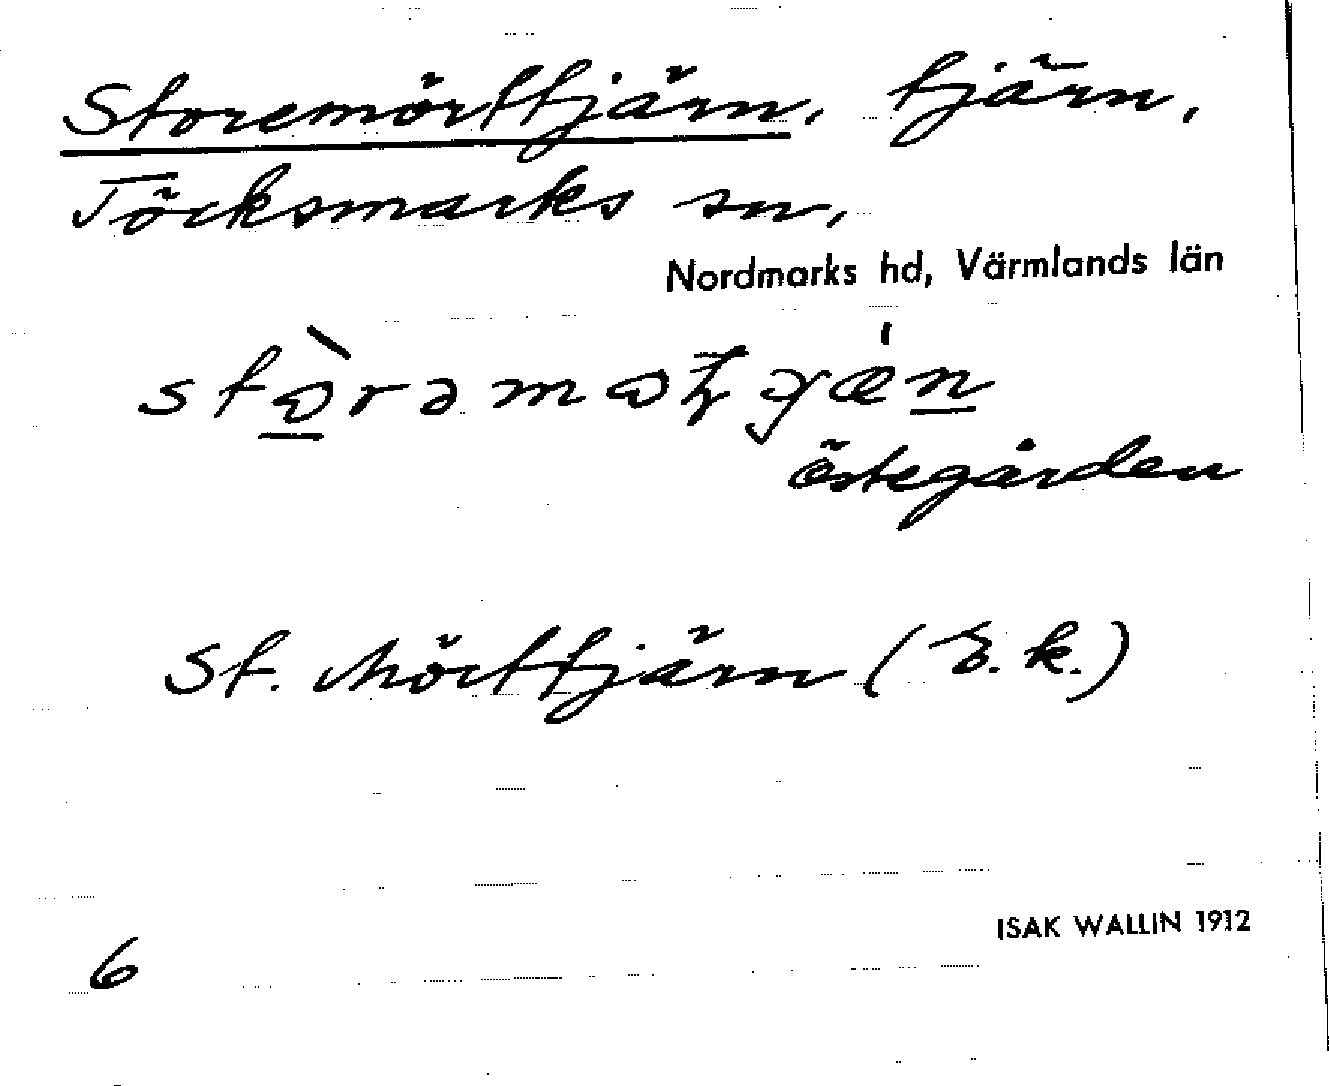 Storemörttjärn, tjärn,
Töcksmarks sn,
Nordmarks hd, Värmlands län
östegården
St. Mörttjärn (E.k.)
ISAK WALLIN 1912
6